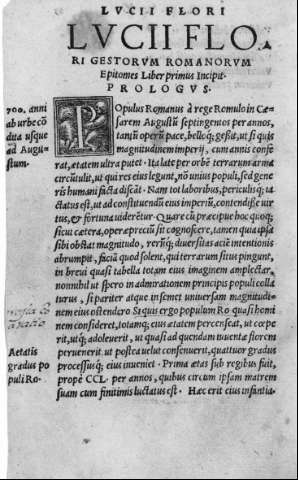 LVCII FLORI
LVCII FLO
RI GESTORVM ROMANORVM
Epitomes Liber primus Incipit.
PROLOGVS.
700. anni
ab urbe cō
dita usque
ad Augu
stum.
POpulus Romanus à rege Romulo in Cæ
sarem Augustū septingentos per annos,
tantū operū pace, belloq; gessit, ut si quis
magnitudinem imperij, cum annis confe
rat, ætatem ultra putet. Ita late per orbē terrarum arma
circūtulit, ut qui res eius legunt, nō unius populi, sed gene
ris humani facta discāt. Nam tot laboribus, periculisq; ia
ctatus est, ut ad constituendū eius imperiū, contendisse uir
tus, & fortuna uideretur. Quare cū præcipue hoc quoq;
sicut cætera, operæpreciū sit cognoscere, tamen quia ipsa
sibi obstat magnitudo, rerūq; diuersitas aciē intentionis
abrumpit, faciā quod solent, qui terrarum situs pingunt,
in breui quasi tabella totam eius imaginem amplectar,
nonnihil ut spero in admirationem principis populi colla
turus, si pariter atque insemet uniuersam magnitudi
nem eius ostendero Siquis ergo populum Ro quasi homi
nem consideret, totamq; eius ætatem percenseat, ut cœpe
rit, utq; adoleuerit, ut quasi ad quendam iuuentæ florem
peruenerit ut postea uelut consenuerit, quattuor gradus
processusq; eius inueniet. Prima ætas sub regibus fuit,
propè CCL. per annos, quibus circum ipsam matrem
suam cum finitimis luctatus est. Hæc erit eius infantia.
Aetatis
gradus po
puli Ro-